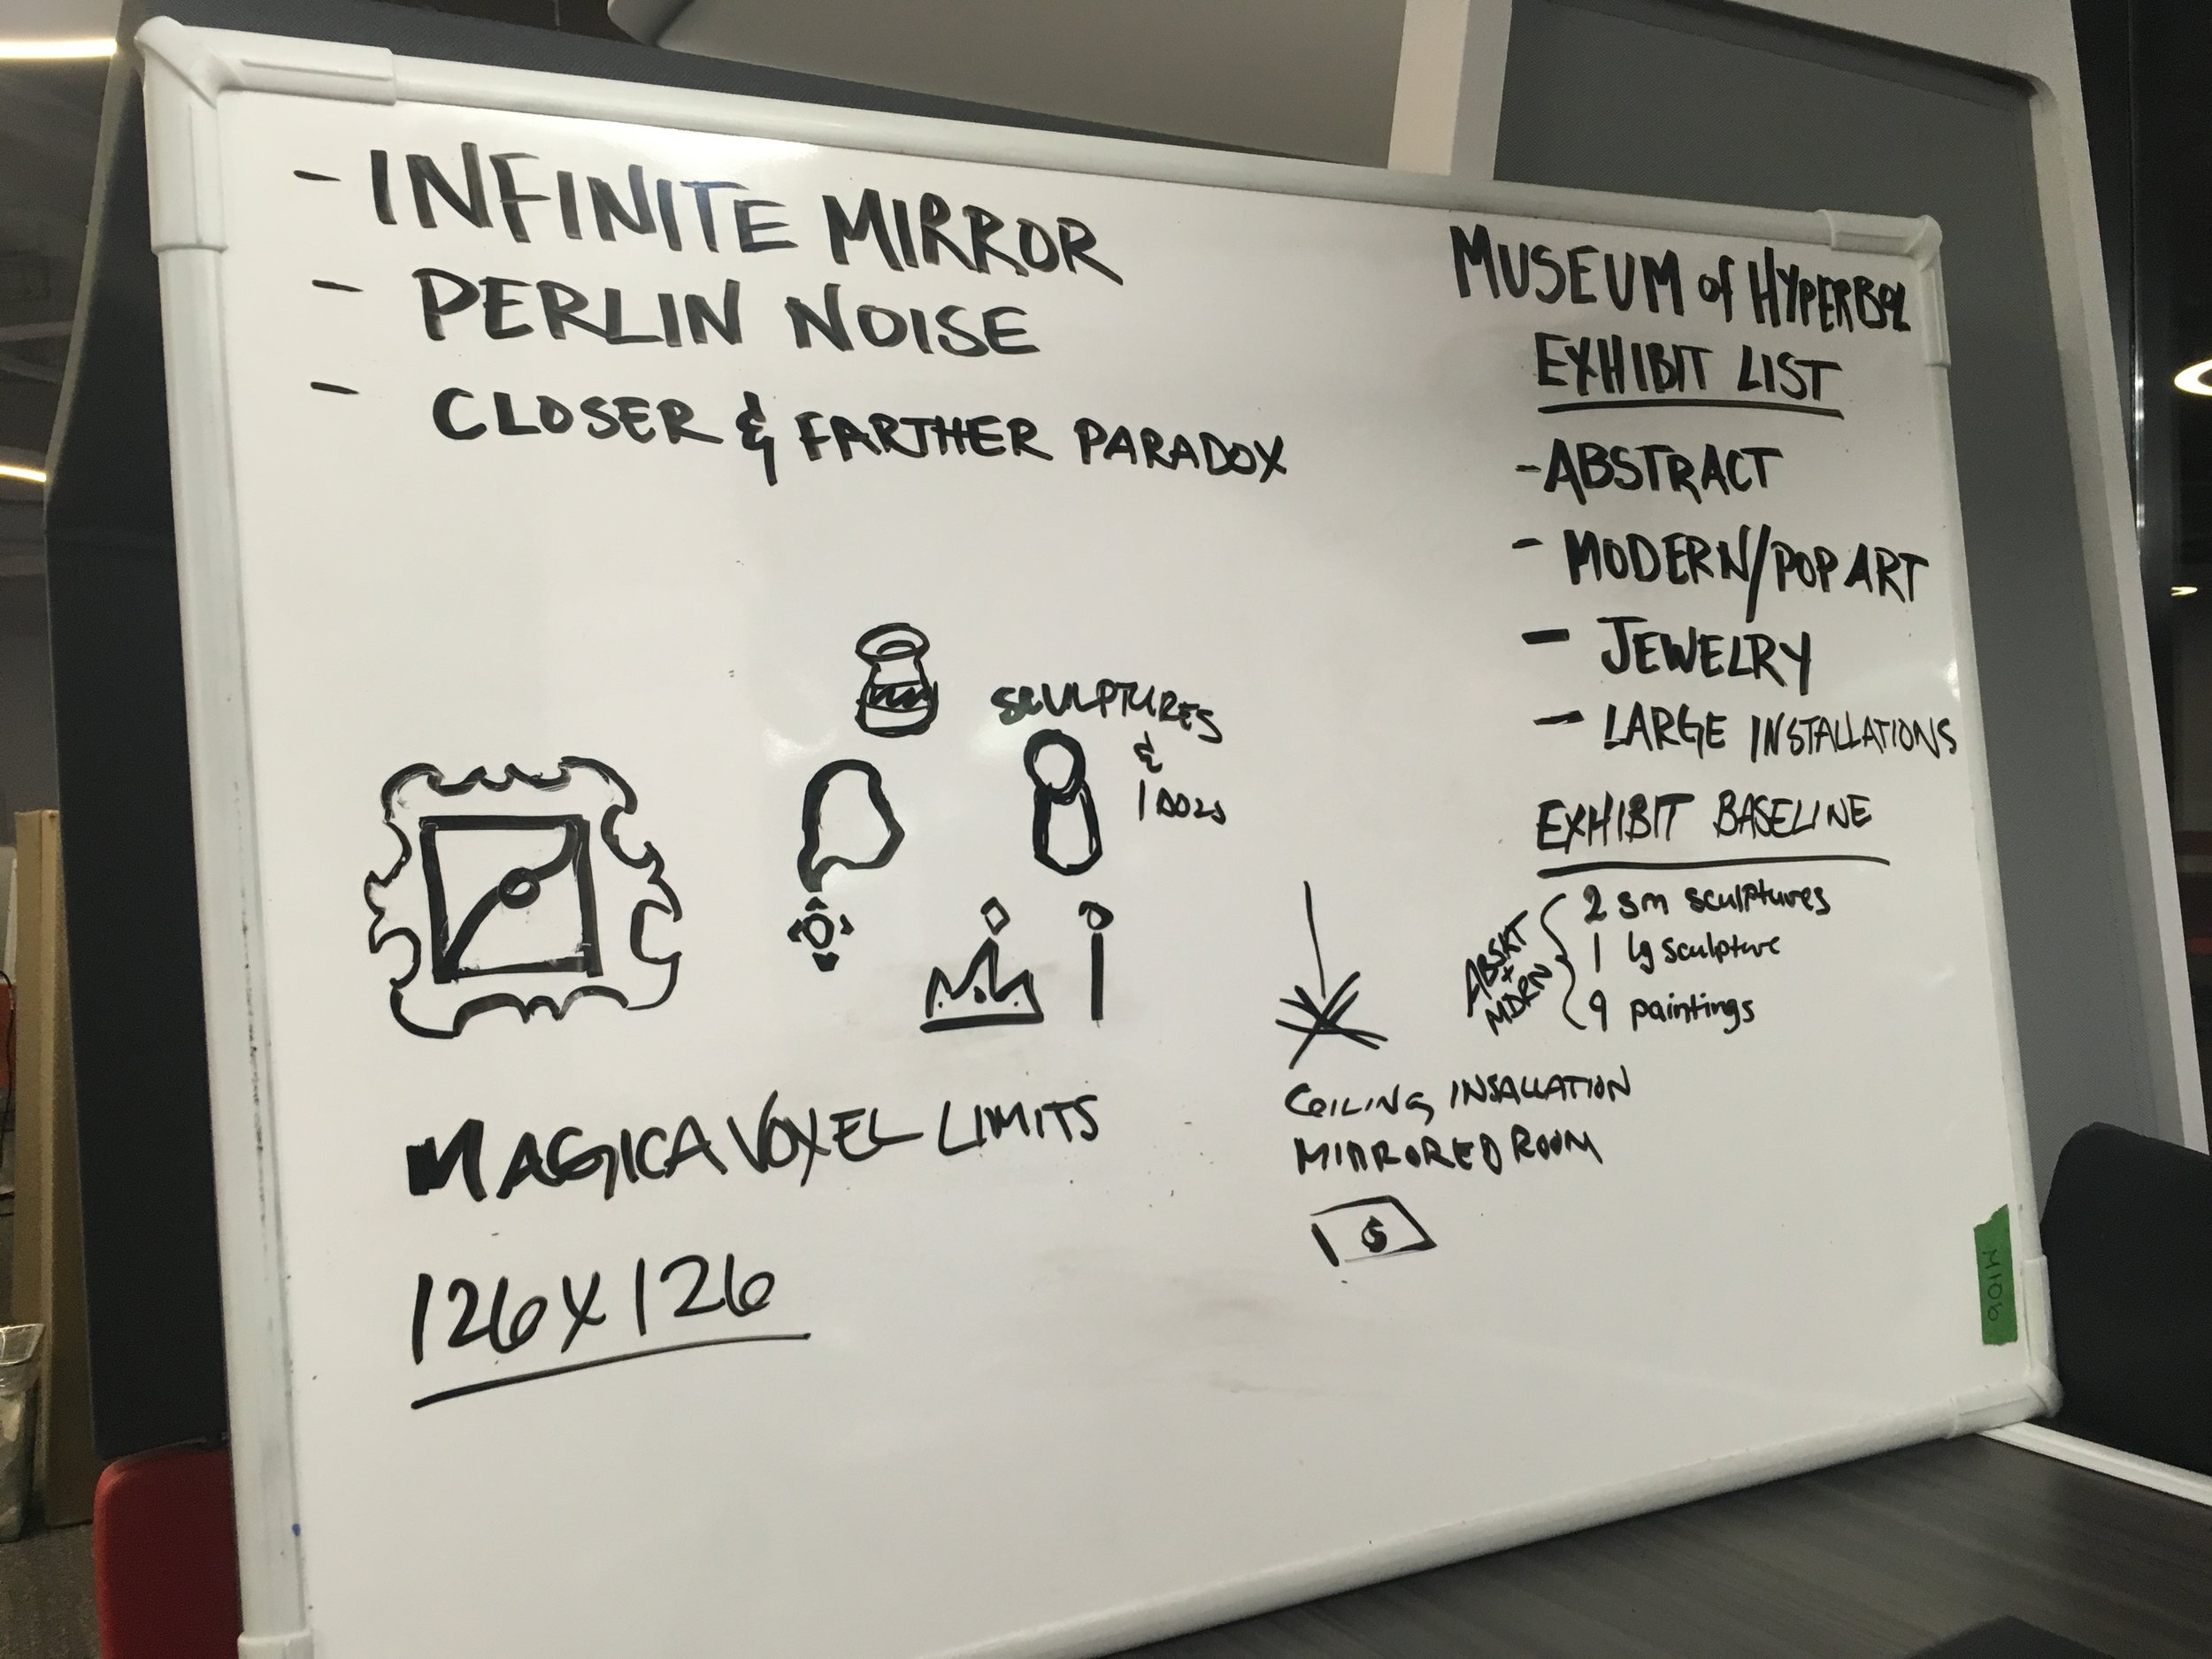 - INFINITE MIRROR
- PERLIN NOISE
- CLOSER & FARTHER PARADOX
SCULPTURES
&
IDOLS
MAGICAVOXEL LIMITS
126X126
MUSEUM of HYPERBOL
EXHIBIT LIST
- ABSTRACT
- MODERN/POP ART
- JEWELRY
- LARGE INSTALLATIONS
EXHIBIT BASELINE
ABSRT
+
MDRN
2 sm sculptures
1 lg sculpture
9 paintings
CEILING INSALLATION
MIRRORED ROOM
$